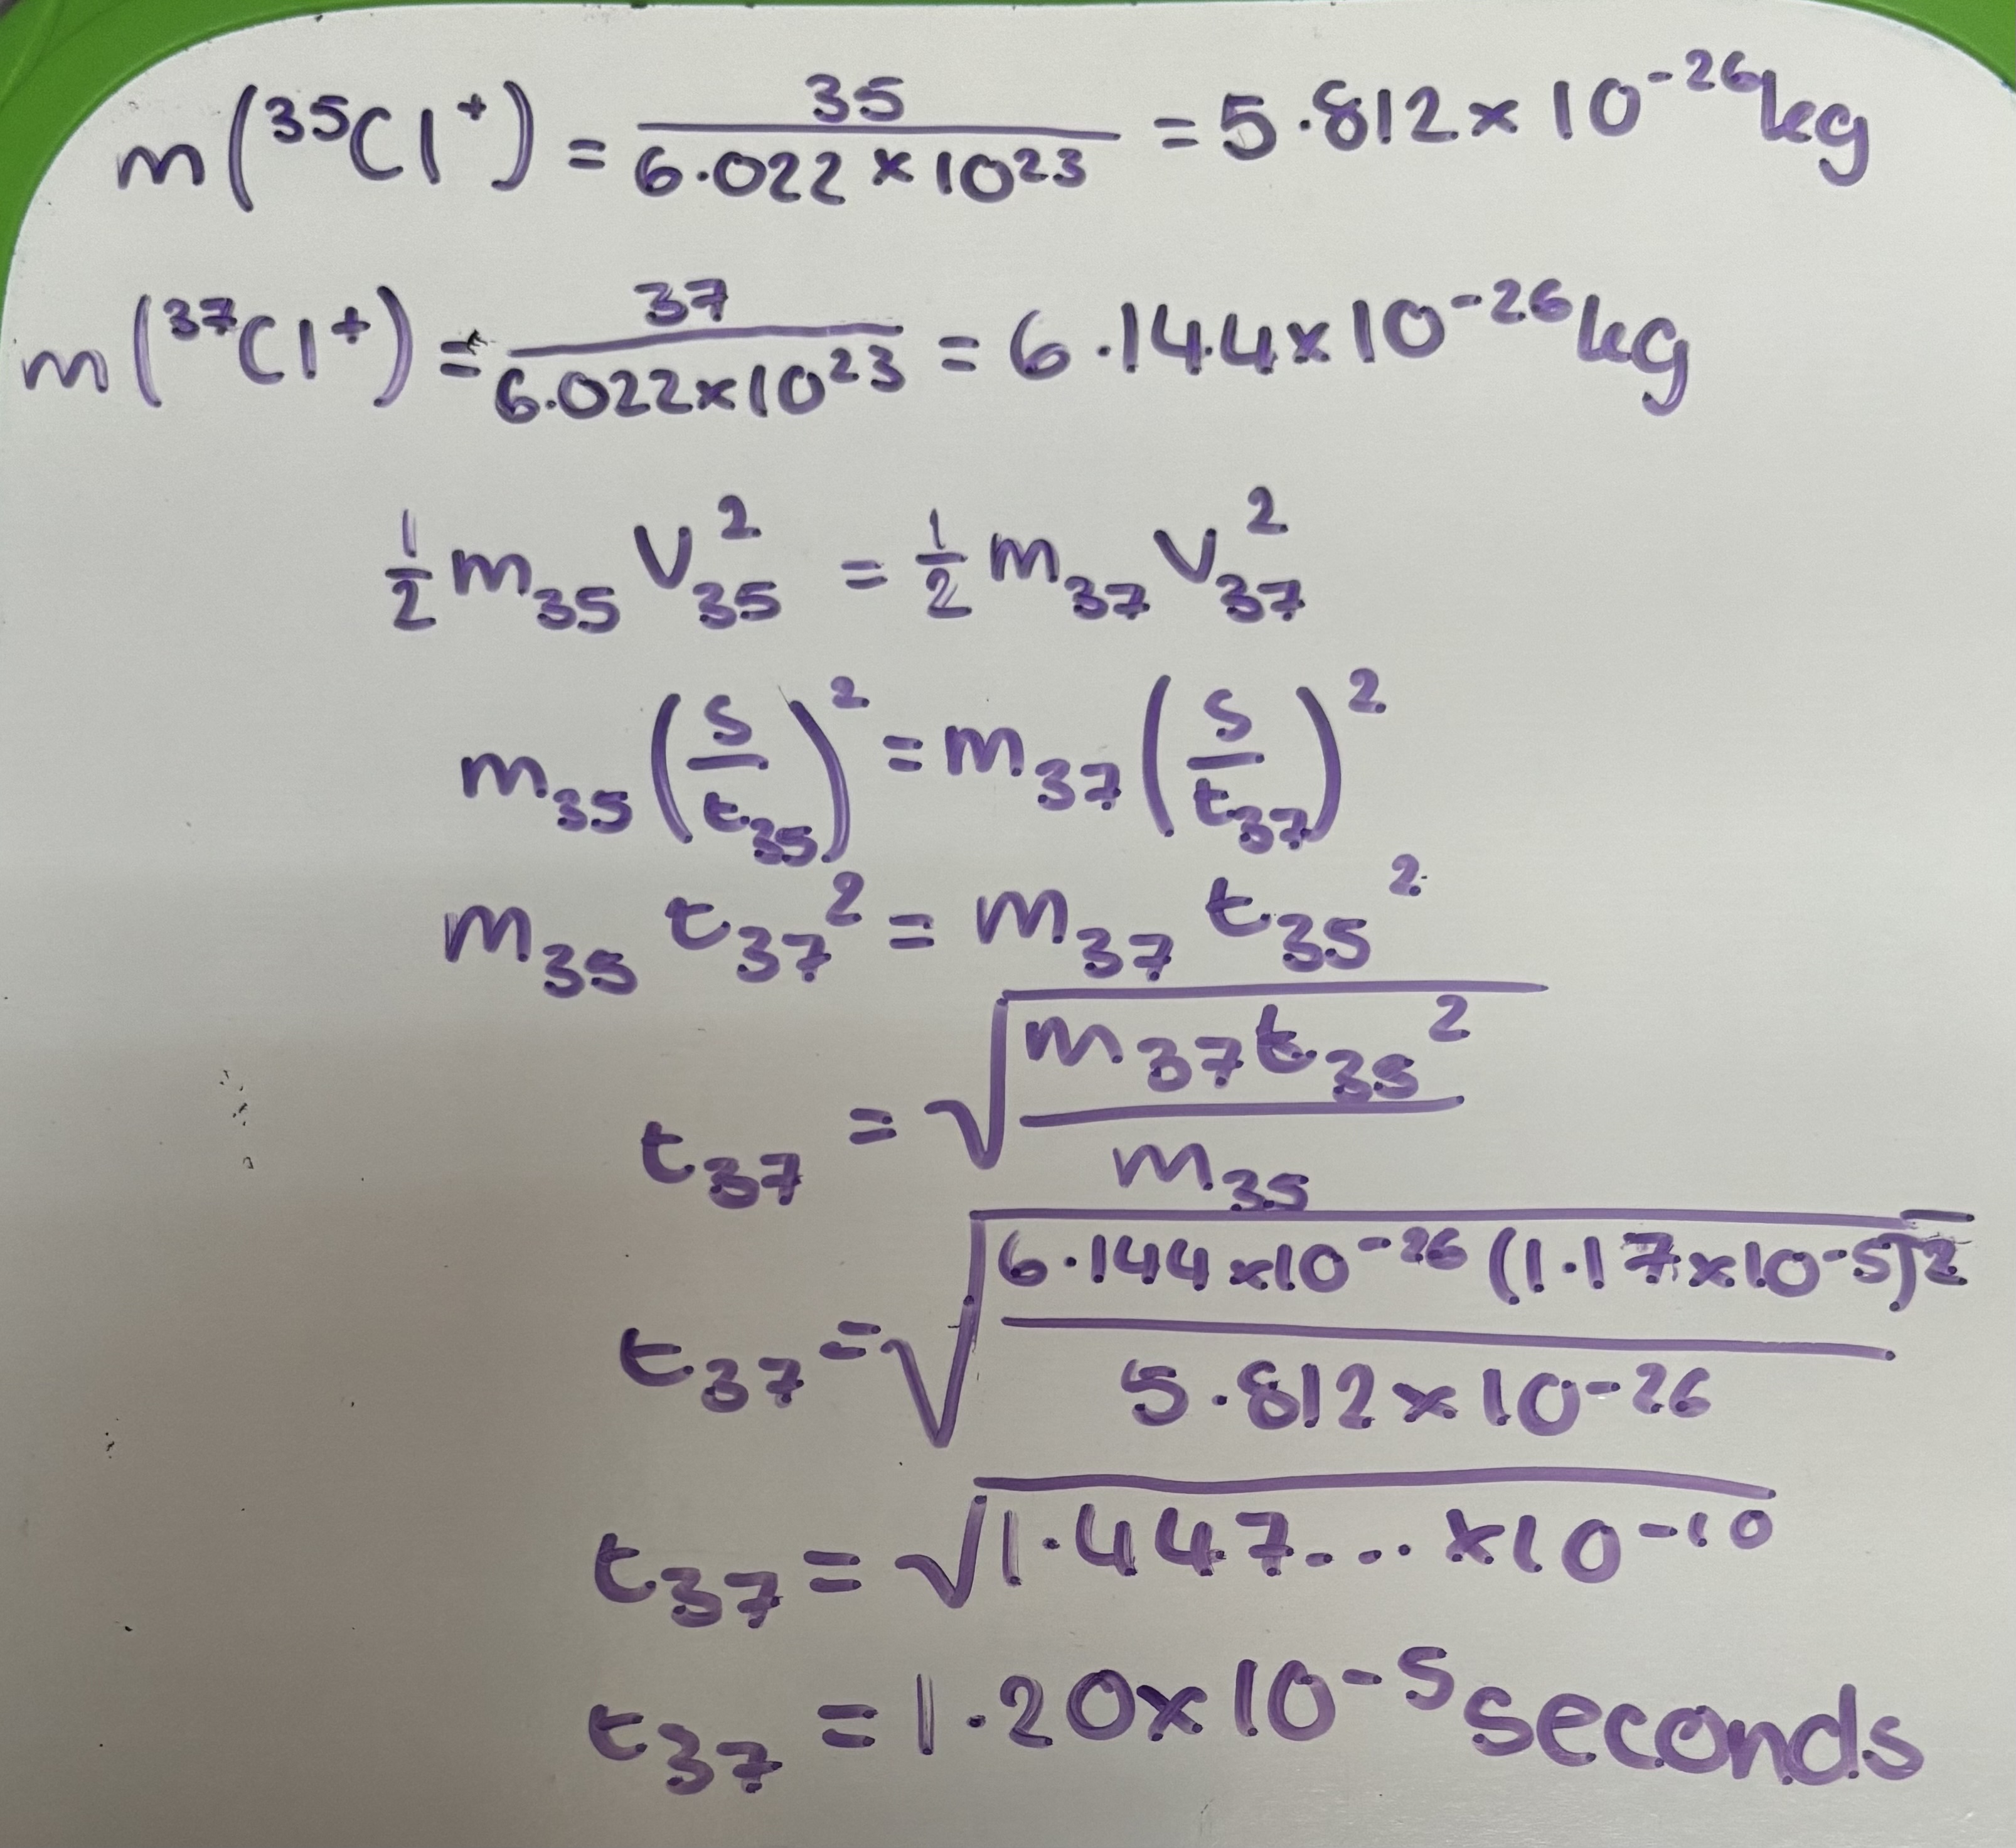 m(³⁵Cl⁺) = 35 / 6.022 × 10²³ = 5.812 × 10⁻²⁶ kg
m(³⁷Cl⁺) = 37 / 6.022 × 10²³ = 6.144 × 10⁻²⁶ kg
½ m₃₅ V₃₅² = ½ m₃₇ V₃₇²
m₃₅ (s/t₃₅)² = m₃₇ (s/t₃₇)²
m₃₅ t₃₇² = m₃₇ t₃₅²
t₃₇ = √(m₃₇ t₃₅² / m₃₅)
t₃₇ = √(6.144 × 10⁻²⁶ (1.17 × 10⁻⁵)² / 5.812 × 10⁻²⁶)
t₃₇ = √(1.447... × 10⁻¹⁰)
t₃₇ = 1.20 × 10⁻⁵ seconds